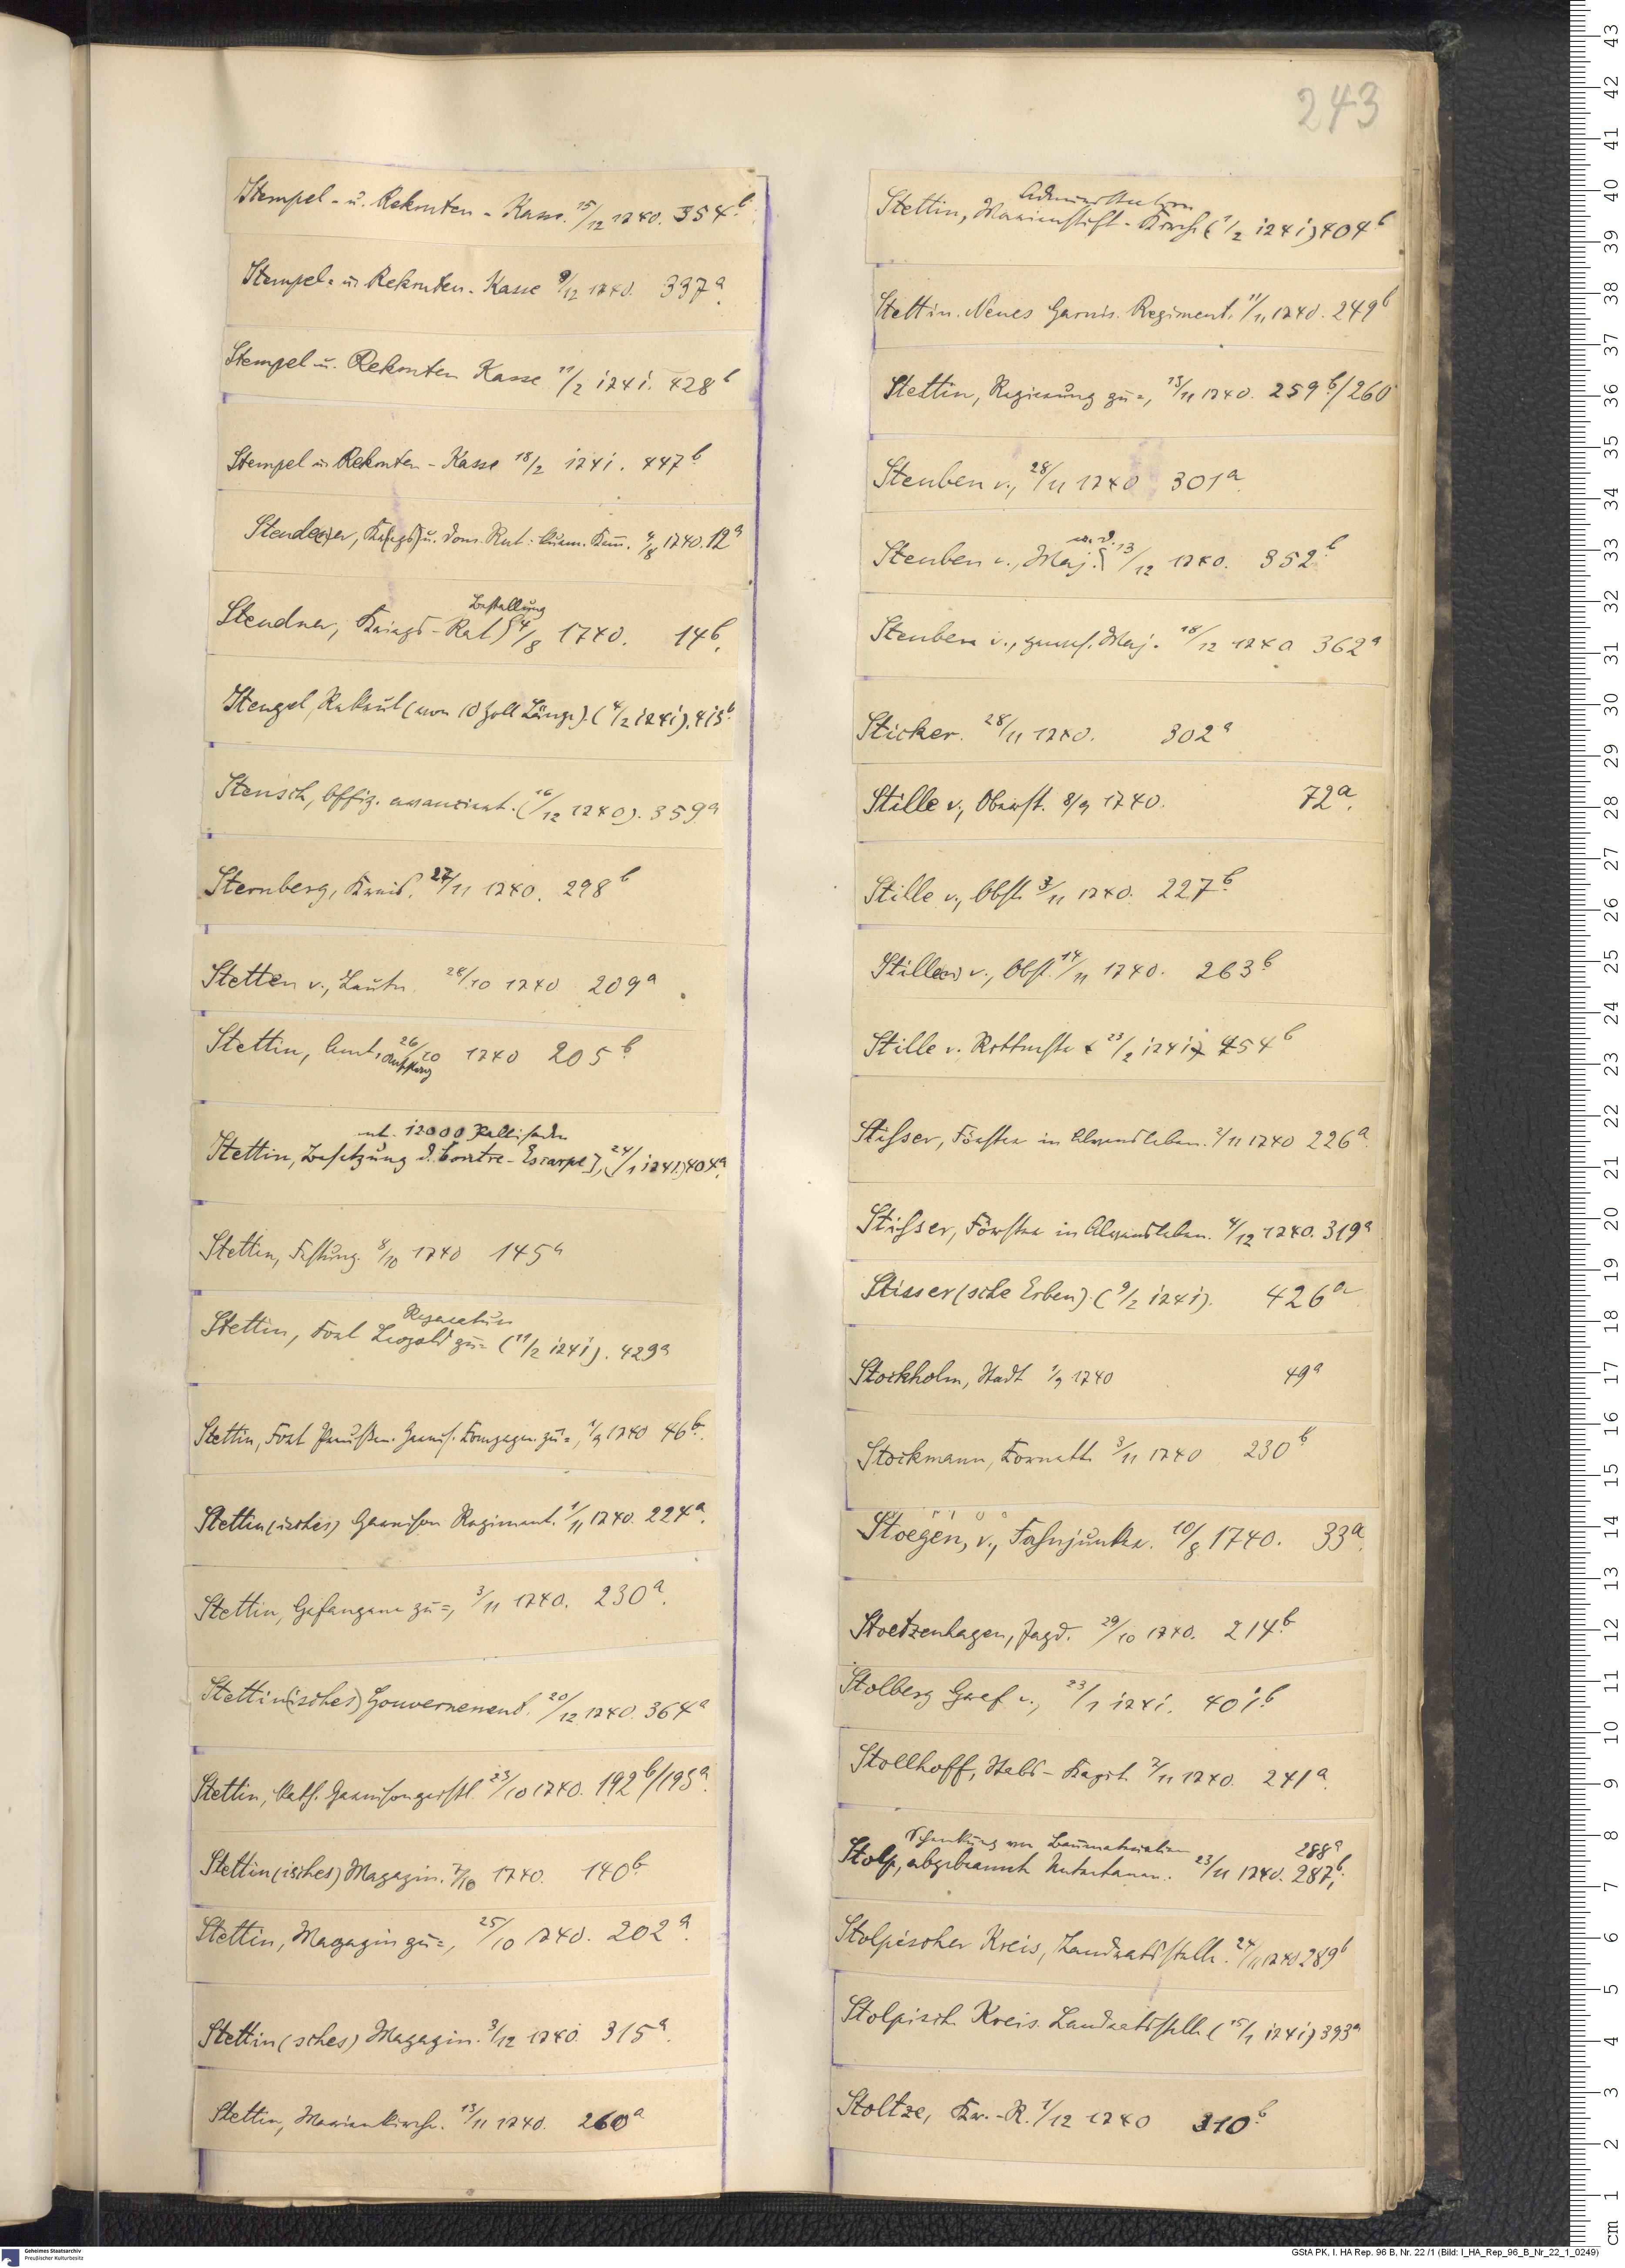 243
Stempel- u. Rekruten-Kasse. 15/12 1740. 354b.
Stempel- u. Rekruten-Kasse 9/12 1740. 337a.
Stempel u. Rekruten Kasse 11/2 1741. 428b
Stempel u Rekruten-Kasse 18/2 1741. 447b.
Stende(n)er, Kr(iegs) u. Dom. Rat. Kurm. Kam. 4/8 1740. 12a
Bestallung
Stendner, Kriegs-Rat) 4/8 1740. 14b.
Stengel, Rekrut (von 10 Zoll Länge). (4/2 1741). 415b.
Stensch, Offiz. avanciert. (16/12 1740). 359a
Sternberg, Kreis. 27/11 1740. 298b
Stetten v., Leutn. 28/10 1740 209a
Stettin, Amt, 26/10 1740 205b.
mit 12000 Pallisaden
Stettin, Besetzung d. Contre-Escarpe], (24/1 1741) 404a.
Stettin, Festung. 8/10 1740 145a
Reparatur
Stettin, Fort Leopold zu= (11/2 1741). 429a
Stettin, Fort Preußen. Garnis. Kompagn. zu=, 1/9 1740 46b.
Stettin(isches) Garnison Regiment. 1/11 1740. 224a.
Stettin, Gefangene zu=, 3/11 1740. 230a.
Stettin(isches) Gouvernement. 20/12 1740. 364a
Stettin, Kath. Garnisongeistl. 23/10 1740. 192b/195a.
Stettin(isches) Magazin. 7/10 1740. 140b
Stettin, Magazin zu=, 25/10 1740. 202a.
Stettin(sches) Magazin. 3/12 1740. 315a.
Stettin, Marienkirche. 13/11 1740. 260a
Administration
Stettin, Marienstift-Kirche (1/2 1741) 404b
Stettin. Neues Garnis. Regiment. 11/11 1740. 249b
Stettin, Regierung zu=, 13/11 1740. 259b./260
Steuben v., 28/11 1740 301a.
Steuben v., Maj. 13/12 1740. 352b
Steuben v., Maj. 18/12 1740 362a
Sticker. 28/11 1740. 302a
Stille v., Oberst. 8/9 1740. 72a.
Stille v., Obst. 3/11 1740. 227b.
Stille(n) v., Obst. 14/11 1740. 263b
Stille v. 23/2 1741 454b
Stisser, Förster in Alvensleben. 2/11 1740 226a.
Stisser, Förster in Alvensleben. 4/12 1740. 319a
Stisser(sche Erben). (9/2 1741). 426a
Stockholm, Stadt 1/9 1740 49a
Stockmann, Kornett. 3/11 1740 230b
Stoegen, v., Fahnjunker. 10/8 1740. 33a.
Stoetzenhagen, Jagd. 29/10 1740. 214b.
Stolberg Graf v., 23/1 1741. 401b
Stollhoff, Stabs-Kapit. 7/11 1740. 241a.
Schenkung von Baumaterialien 288a
Stolp, abgebrannte Untertanen. 23/11 1740. 287b;
Stolpischer Kreis, Landratsstelle. 24/11 1740 289b
Stolpisch Kreis. Landratsstelle (15/1 1741) 393a
Stoltze, Kr.-R. 1/12 1740 310b.
Geheimes Staatsarchiv
Preußischer Kulturbesitz
GStA PK, I. HA Rep. 96 B, Nr. 22 /1 (Bild: I_HA_Rep_96_B_Nr_22_1_0249)